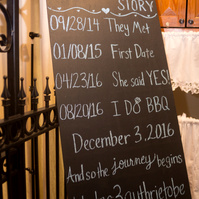 STORY
09/28/14 They Met
01/08/15 First Date
04/23/16 She said YES!
08/20/16 I DO BBQ
December 3, 2016
And so the journey begins